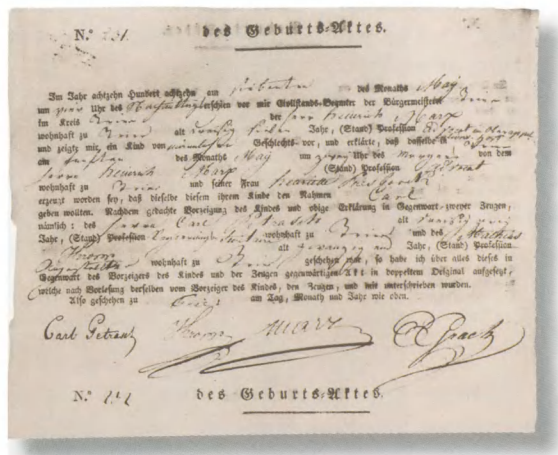 N.° 231. des Geburts-Aktes.
Im Jahr achtzehn Hundert achtzehn am siebenten des Monaths May
um vier Uhr des Nachmittags erschien vor mir Civilstands-Beamter der Bürgermeisterei Trier
im Kreis Trier der Herr Heinrich Marx
wohnhaft zu Trier alt Jahr, (Stand) Profession
und zeigte mir, ein Kind vor männlichen Geschlechts vor, und erklärte, daß dasselbe in Trier
am fünften des Monaths May um zwey Uhr des Morgens von dem
Herrn Heinrich Marx (Stand) Profession Advokat
wohnhaft zu Trier und seiner Frau Henriette Presborck
erzeugt worden sey, daß dieselbe diesem ihrem Kinde den Nahmen Carl
geben wollten. Nachdem gedachte Vorzeigung des Kindes und obige Erklärung in Gegenwart zweyer Zeugen,
nämlich: des Herrn Carl Petrasch alt
Jahr, (Stand) Profession wohnhaft zu Trier und des Mathias
Kropp alt Jahr, (Stand) Profession
wohnhaft zu Trier geschehen war, so habe ich über alles dieses in
Gegenwart des Vorzeigers des Kindes und der Zeugen gegenwärtigen Akt in doppeltem Original aufgesetzt,
welche nach Vorlesung derselben vom Vorzeiger des Kindes, den Zeugen, und mir unterschrieben wurden.
Also geschehen zu Trier am Tag, Monath und Jahr wie oben.
Carl Petrasch Kropp Marx E Grach
N.° 232 des Geburts-Aktes.